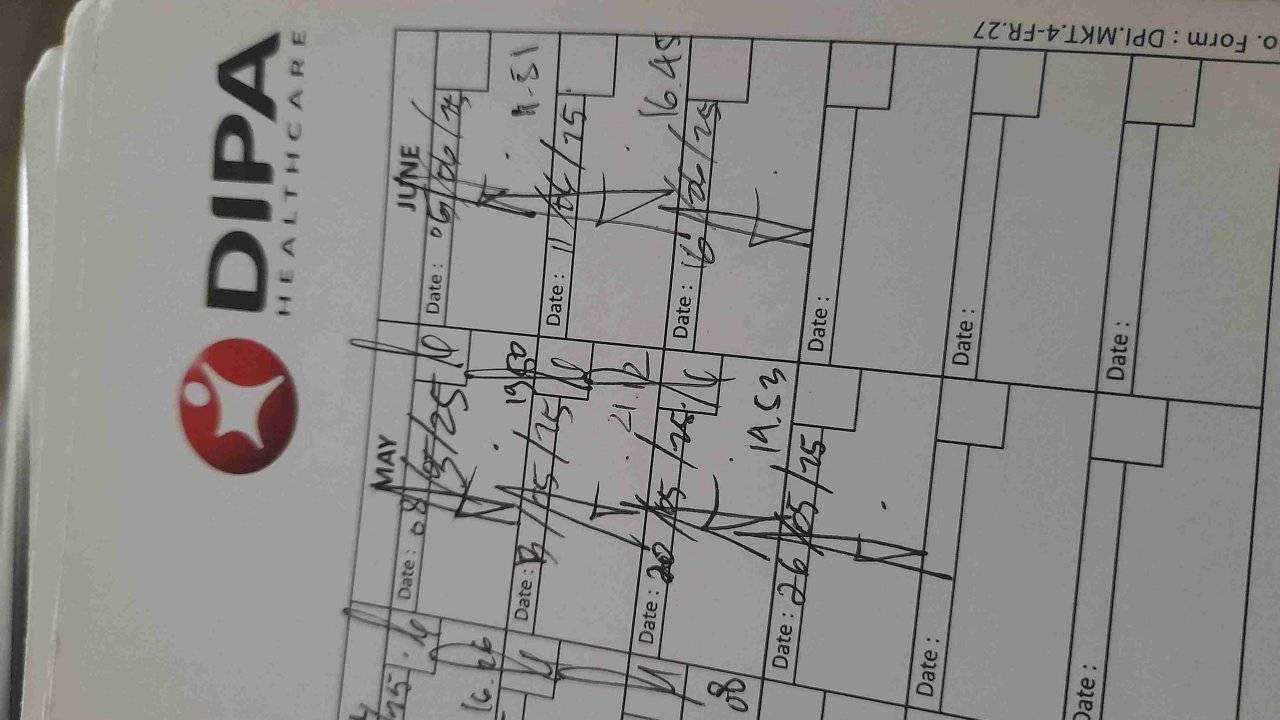 DIPA
HEALTHCARE
o. Form : DPI.MKT.4-FR.27
MAY
Date : 08/05/25
19.50
Date : 13/05/25
21.12
Date : 20/05/25
19.53
Date : 26/05/25
Date :
Date :
JUNE
Date : 05/06/25
Date : 11/06/25
16.45
Date : 16/06/25
Date :
Date :
Date :
16.26
08